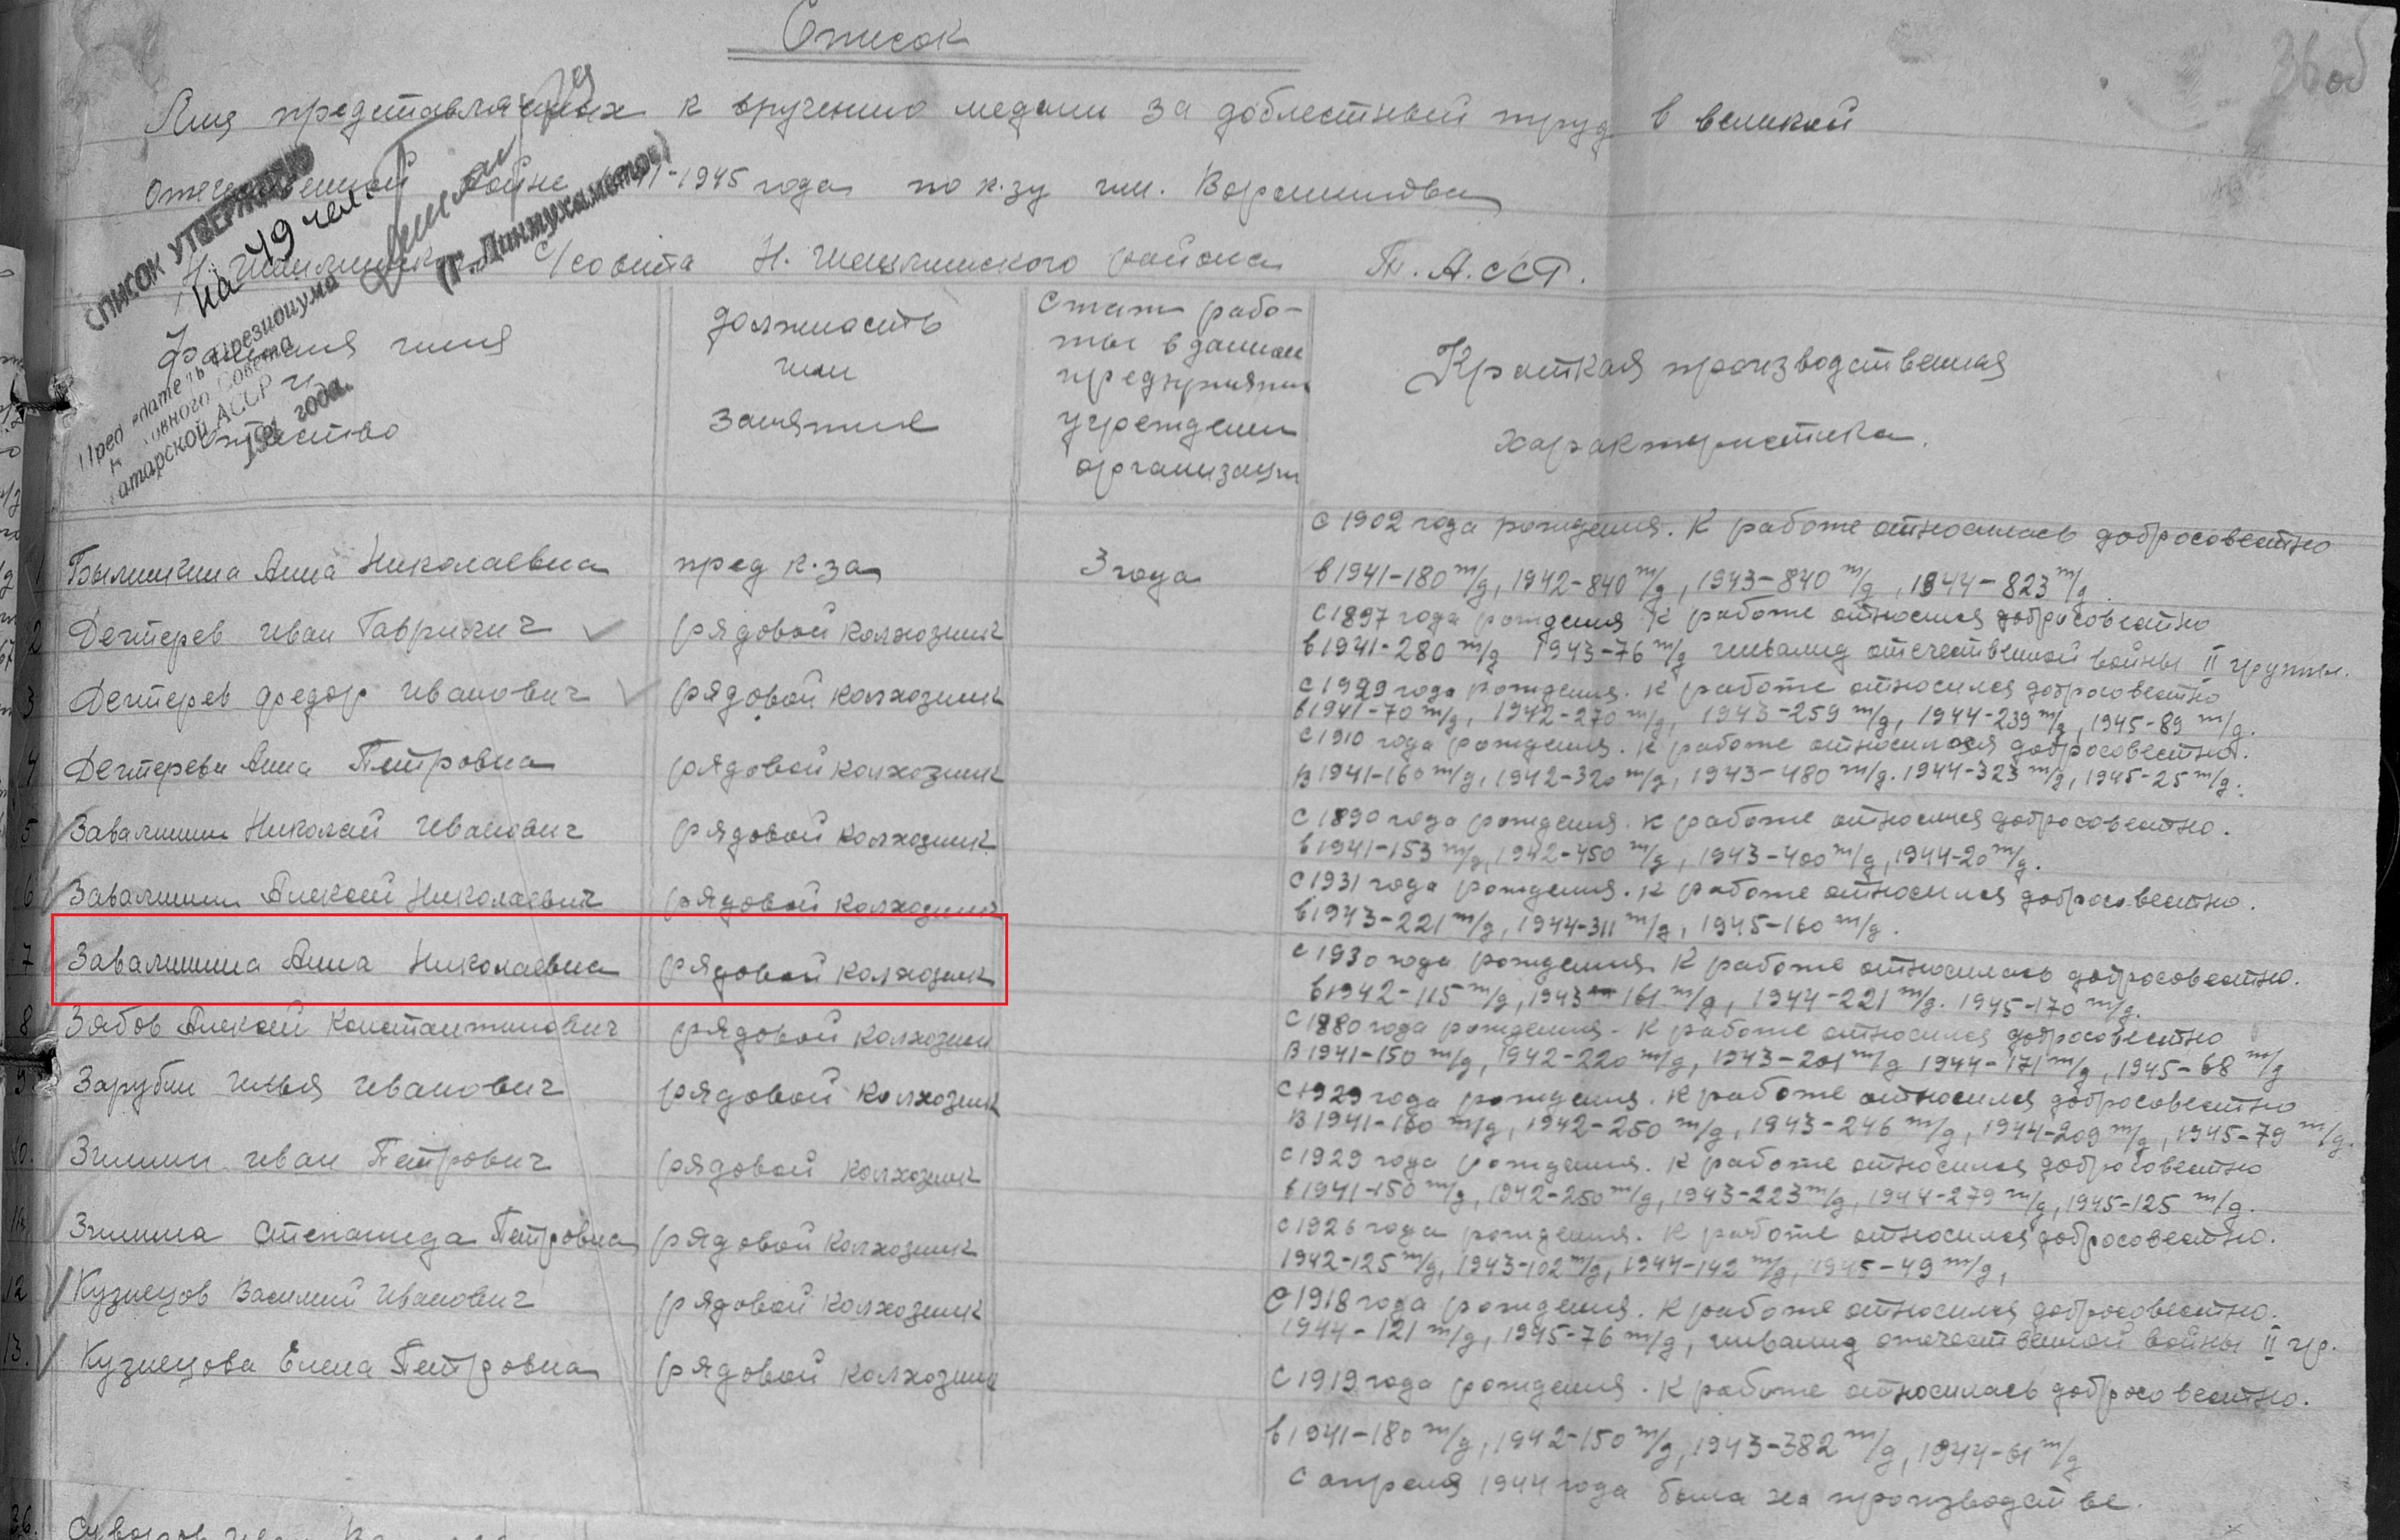 Список
36 об
Лиц представленных к вручению медали за доблестный труд в великой
Отечественной войне 1941-1945 года по к.зу им. Ворошилова
Н. Шешминского с/совета Н. Шешминского района Т.А.ССР.
СПИСОК УТВЕРЖДЕНО
на 49 чел.
Председатель Президиума
Верховного Совета
Татарской АССР
194 года.
(Г. Динмухаметов)
Фамилия имя и отчество
должность или занятие
Стаж работы в данном предприятии учреждении организации
Краткая производственная
характеристика.
с 1902 года рождения. К работе относилась добросовестно
1 Былинкина Анна Николаевна пред к.за 3 года в 1941-180 т/д, 1942-840 т/д, 1943-840 т/д, 1944-823 т/д.
с 1897 года рождения К работе относился добросовестно
2 Дегтерев Иван Гаврилич рядовой колхозник в 1941-280 т/д 1943-76 т/д инвалид отечественной войны II группы.
с 1929 года рождения. К работе относился добросовестно
3 Дегтерев Федор Иванович рядовой колхозник в 1941-70 т/д, 1942-270 т/д, 1943-259 т/д, 1944-239 т/д, 1945-89 т/д.
с 1910 года рождения. К работе относилася добросовестно.
4 Дегтерева Анна Петровна рядовой колхозник В 1941-160 т/д, 1942-320 т/д, 1943-480 т/д. 1944-323 т/д, 1945-25 т/д.
с 1890 года рождения. К работе относился добросовестно.
5 Завалишин Николай Иванович рядовой колхозник в 1941-153 т/д, 1942-450 т/д, 1943-400 т/д, 1944-20 т/д.
с 1931 года рождения. К работе относился добросовестно.
6 Завалишин Алексей Николаевич рядовой колхозник в 1943-221 т/д, 1944-311 т/д, 1945-160 т/д.
с 1930 года рождения К работе относилась добросовестно.
7 Завалишина Анна Николаевна рядовой колхозник в 1942-115 т/д, 1943-161 т/д, 1944-221 т/д. 1945-170 т/д.
с 1880 года рождения - К работе относился добросовестно
8 Зябов Алексей Константинович рядовой колхозник В 1941-150 т/д, 1942-220 т/д, 1943-201 т/д 1944-171 т/д, 1945-68 т/д
с 1929 года рождения. К работе относился добросовестно
9 Зарубин Илья Иванович рядовой колхозник В 1941-160 т/д, 1942-250 т/д, 1943-246 т/д, 1944-209 т/д, 1945-79 т/д.
с 1929 года рождения. К работе относился добросовестно
10. Зимин Иван Петрович рядовой колхозник в 1941-150 т/д, 1942-250 т/д, 1943-223 т/д, 1944-279 т/д, 1945-125 т/д.
с 1926 года рождения. К работе относился добросовестно.
11 Зимина Степанида Петровна рядовой колхозник 1942-125 т/д, 1943-102 т/д, 1944-142 т/д, 1945-49 т/д,
с 1918 года рождения. К работе относился добросовестно.
12 Кузнецов Василий Иванович рядовой колхозник 1944-121 т/д, 1945-76 т/д, инвалид отечественной войны II гр.
13. Кузнецова Елена Петровна рядовой колхозник с 1919 года рождения. К работе относилась добросовестно.
в 1941-180 т/д, 1942-150 т/д, 1943-382 т/д, 1944-61 т/д
с апреля 1944 года была на производстве.
26. Суворов Иван